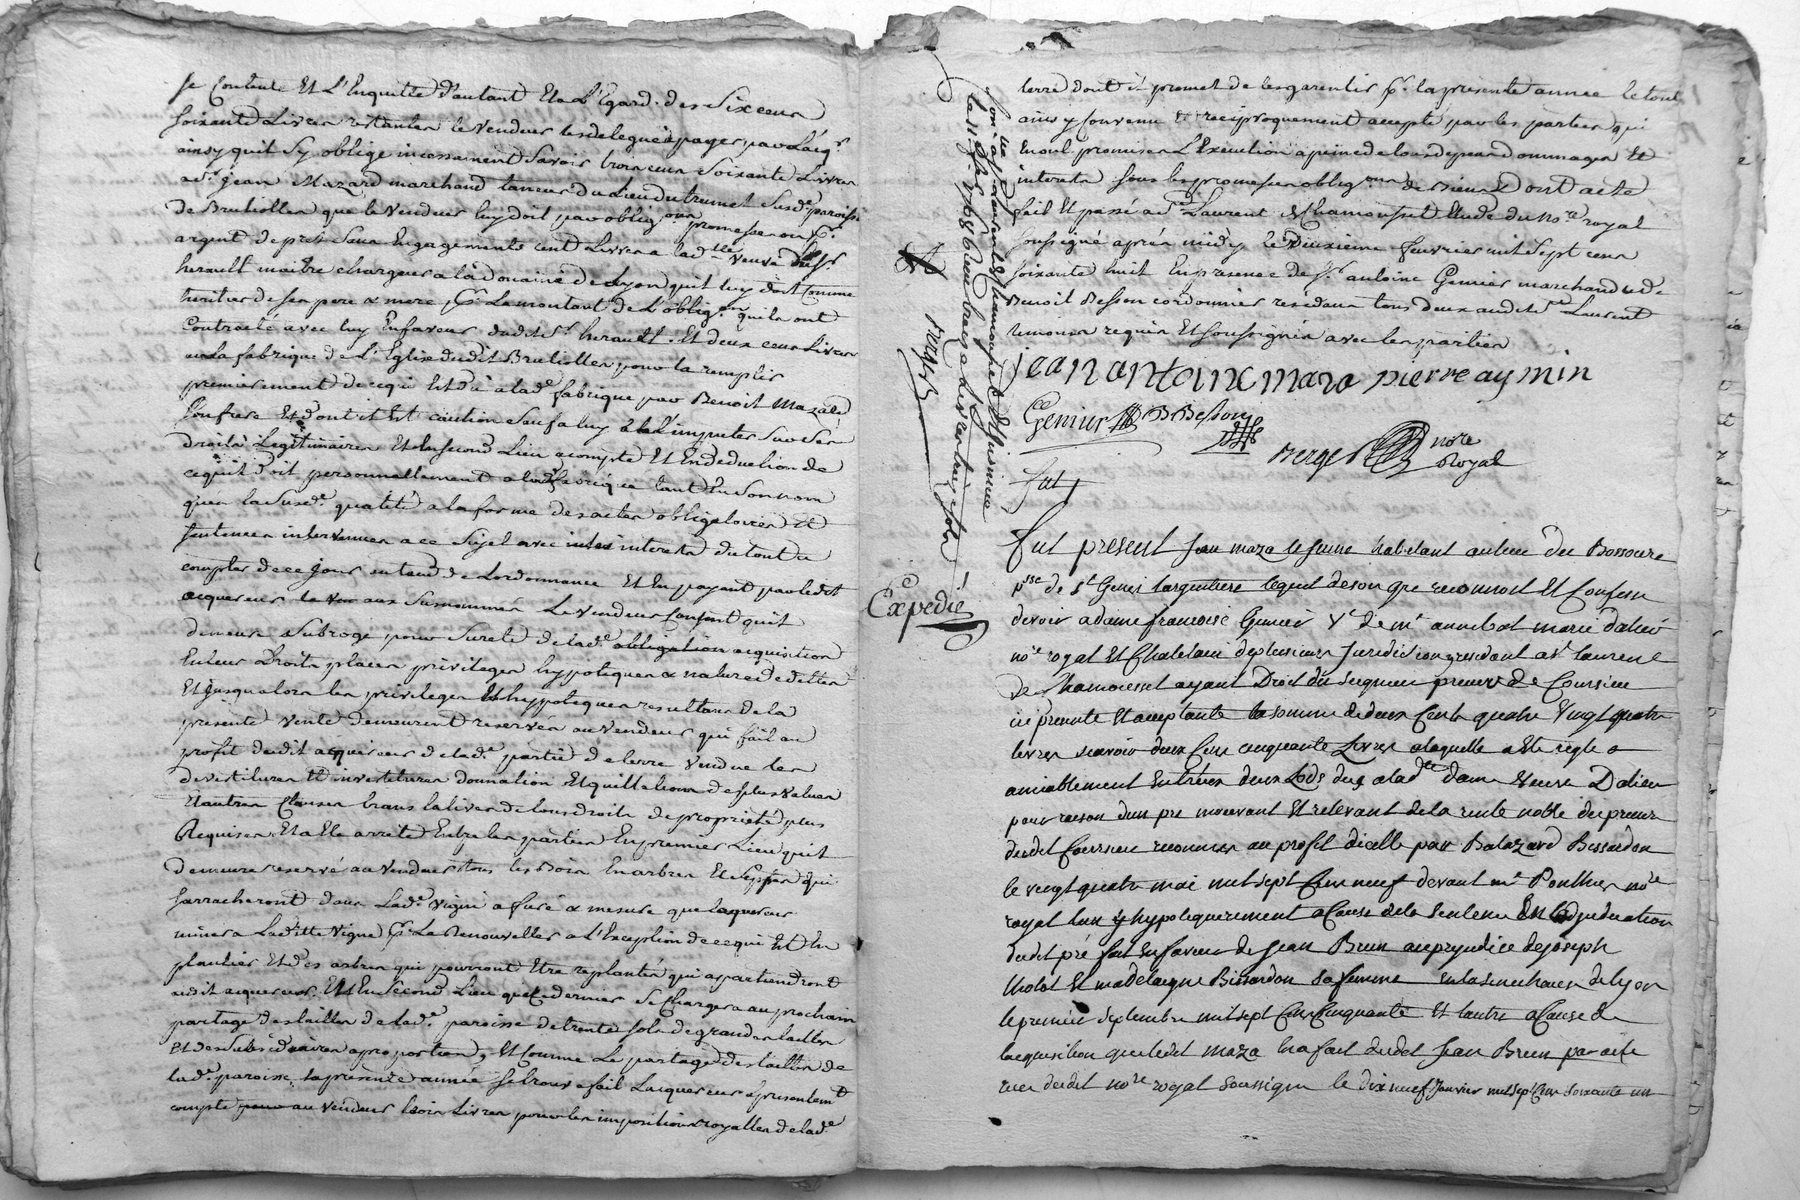 se Contente Et L'Enquitte d'autant Et a L'Egard des Six cens
soixante Livres restantes le Vendeur les delegue à payer par L'acqr.
ainsy quil sy oblige incessament Savoir trois cens Soixante Livres
a sr. jean Mazard marchand taneur du Lieu du trumet Susde. paroisse
de Brulioller que le Vendeur luy doit par obligon. promesse ou pr.
argent de pret Sans Engagements cent Livres a lade. dlle veuve du sr.
herault maitre chargeur a la doüaine de Lyon quil luy doit Comme
heritier de ses pere & mere, pr. Le montant de L'obligon. quils ont
Contracté avec luy En faveur dudit sr. herault. Et deux cens Livres
a la fabrique de L'Eglise dudit Brulioller pour la remplir
premierement de ce qui Est dû à lade. fabrique par Benoit Mazard
son frere Et dont il Est caution Sauf a luy a L'imputer Sur Ses
droits Legitimaires Et En second Lieu acompte Et En deduction de
ce quil doit personnellement a lade. fabrique tant En son nom
qu'en la Susde. qualité a la forme des actes obligatoires Et
sentences intervenues a ce Sujet avec interets du tout a
compter de ce jour au taux de Lordonnance Et En payant par ledit
acquereur aux Susnommés Le Vendeur Consent quil
demeure Subrogé pour Sureté de lade. acquisition
En leur Droits places privileges hyppoteques & nature de dettes
Et jusqualors les privileges Et hyppoteques resultans de la
presente vente demeurent reservés au Vendeur qui fait au
profit dudit acquereur de lade. partie de terre Vendue les
devestitures Et investitures donnation Et quittations de plus values
Et autres Clauses translatives de tous droits de proprieté plus
Requises. Et a Ete arreté Entre les parties En premier Lieu quil
demeure reservé au Vendeur tous les Bois En arbres Et Seps qui
sarracheront dans lade. vigne a furé & mesure que lacquereur
minera Laditte Vigne pr. La Renouveller a L'Exception de ce qui Est En
plantier Et des arbres qui pourront Etre replantés qui appartiendront
audit acquereur. Et En Second Lieu que ce dernier Se Chargera au prochain
partage des tailles de lade. paroisse de trente sols de grandes tailles
Et des Subsidiaires a proportion, Et Comme Le partage des tailles de
lade. paroisse la presente année se trouve fait Lacquereur a presentemt
compté au vendeur trois Livres pour les impositions royalles de lade.
terre dont il promet de les garentir pr. la presente année le tout
ainsy Convenu & reciproquement accepté par les parties qui
En ont promis L'Execution a peine de tous depens dommages Et
interets sous les promesses obligons. de Biens Dont acte
fait Et passé a St. Laurent de Chamousset Etude du nore. royal
soussigné aprés midy le deuxieme fevrier mil sept cens
soixante huit En presence de sr. antoine Genier marchand & de
Benoit Besson cordonnier residans tous deux audit St. Laurent
temoins requis Et soussignés avec les parties
jean antoinx mara pierre aymin
Genier B Besson
Berger nore Royal
fut
Con.lé a St. Laurent de Chamousset
le 11 fev. 1768 Recu treize Livres treize sols
Expedié
fut present Jean maza le Jeune habitant au lieu du Bossoure
psse. de St. Genis largentiere lequel de son gre reconnoit Et Confesse
devoir a dame francoise Genier Ve. de Me. annibal marie dalieu
nore. royal Et Chatelain de plusieurs Juridictions residant a St. laurent
de Chamousset ayant Droit du seigneur prieur de Coursieu
icy presente Et acceptante la somme de deux Cents quatre Vingt quatre
livres scavoir deux Cens cinquante Livres a laquelle a Eté reglé
amiablement Entreux deux Lods dus a ladte. dame Veuve Dalieu
pour raison dun pre mouvant Et relevant de la rente noble du prieur
dudit Coursieu reconnu au profit dicelle par Balazard Bissardon
le vingt quatre mai mil sept Cens neuf devant Me. Ponthus nore.
royal lun hypotequerement a Cause de la sentence En adjudication
dudit pré fait En faveur de Jean Brun au prejudice de Joseph
tholot Et madelaigne Bissardon sa femme En la senechaussee de Lyon
le premier septembre mil sept Cens Cinquante Et lautre a Cause de
lacquisition que ledit maza En a fait dudit Jean Brun par acte
recu dudit nore royal soussigné le dix neuf Janvier mil sept Cens soixante un